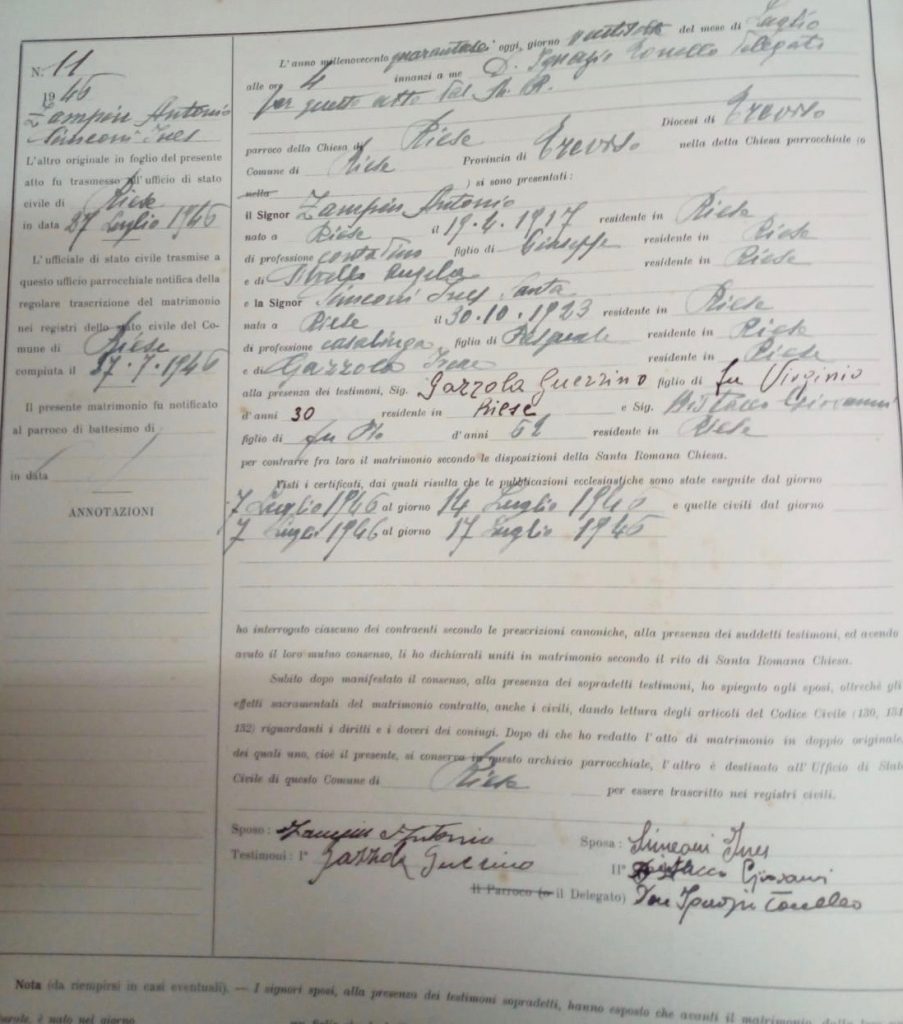 N. 11
1946
Zampin Antonio
Simeoni Ines
L'altro originale in foglio del presente
atto fu trasmesso all'ufficio di stato
civile di Riese
in data 27 Luglio 1946
L'ufficiale di stato civile trasmise a
questo ufficio parrocchiale notifica della
regolare trascrizione del matrimonio
nei registri dello stato civile del Co-
mune di Riese
compiuta il 27.7.1946
Il presente matrimonio fu notificato
al parroco di battesimo di
in data
ANNOTAZIONI
L'anno millenovecento quarantasei oggi, giorno del mese di Luglio
alle ore 4 innanzi a me D. Ignazio Tonello Delegato
per questo atto dal
parroco della Chiesa di Riese Diocesi di Treviso
Comune di Riese Provincia di Treviso nella detta Chiesa parrocchiale (o
nella ) si sono presentati:
il Signor Zampin Antonio
nato a Riese il 19.4.1917 residente in Riese
di professione contadino figlio di Giuseppe residente in Riese
e di Angela residente in Riese
e la Signor Simeoni Ines Santa
nata a Riese il 30.10.1923 residente in Riese
di professione casalinga figlia di Pasquale residente in Riese
e di Gazzola Irene residente in Riese
alla presenza dei testimoni, Sig. Gazzola Guerrino figlio di fu Virginio
d'anni 30 residente in Riese e Sig. Bistacco Giovanni
figlio di fu d'anni 62 residente in Riese
per contrarre fra loro il matrimonio secondo le disposizioni della Santa Romana Chiesa.
Visti i certificati, dai quali risulta che le pubblicazioni ecclesiastiche sono state eseguite dal giorno
7 Luglio 1946 al giorno 14 Luglio 1946 e quelle civili dal giorno
7 Luglio 1946 al giorno 17 Luglio 1946
ho interrogato ciascuno dei contraenti secondo le prescrizioni canoniche, alla presenza dei suddetti testimoni, ed avendo
avuto il loro mutuo consenso, li ho dichiarati uniti in matrimonio secondo il rito di Santa Romana Chiesa.
Subito dopo manifestato il consenso, alla presenza dei sopradetti testimoni, ho spiegato agli sposi, oltrechè gli
effetti sacramentali del matrimonio contratto, anche i civili, dando lettura degli articoli del Codice Civile (130, 131
132) riguardanti i diritti e i doveri dei coniugi. Dopo di che ho redatto l'atto di matrimonio in doppio originale,
dei quali uno, cioè il presente, si conserva in questo archivio parrocchiale, l'altro è destinato all'Ufficio di Stato
Civile di questo Comune di Riese per essere trascritto nei registri civili.
Sposo: Zampin Antonio Sposa: Simeoni Ines
Testimoni: Iº Gazzola Guerrino IIº Bistacco Giovanni
Il Parroco (o il Delegato) Don Ignazio Tonello
Nota (da riempirsi in casi eventuali). — I signori sposi, alla presenza dei testimoni sopradetti, hanno esposto che avanti il matrimonio, dalla loro
è nato nel giorno